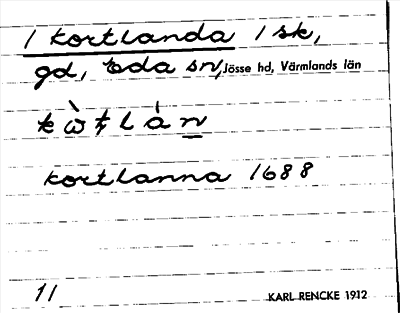 1 Kortlanda 1 sk,
gd, Eda sn, Jösse hd, Värmlands län
kortlanna 1688
11 KARL RENCKE 1912